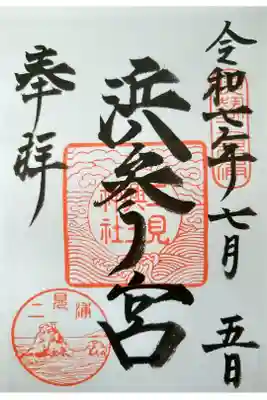 令和七年七月五日
浜参宮
二見
興玉
神社
奉拝
二見浦